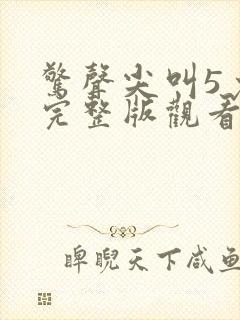 驚聲尖叫5
完整版觀看
睥睨天下咸鱼